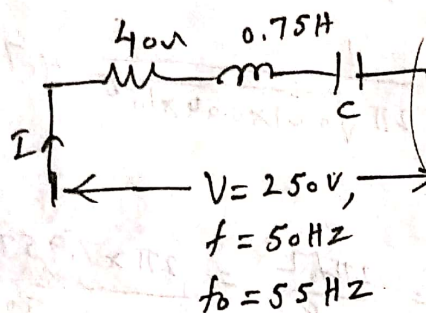 40Ω 0.75H
C
I
V = 250V,
f = 50HZ
f0 = 55HZ